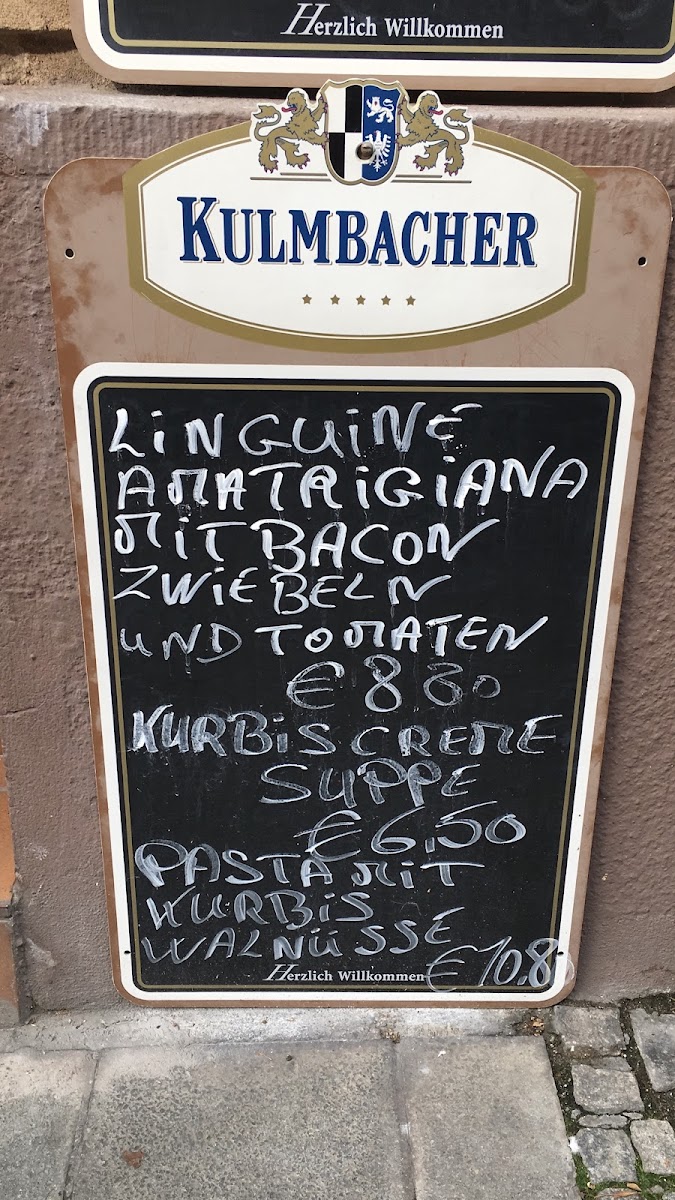 Herzlich Willkommen
KULMBACHER
LiNGUiNE
AMATRiGiANA
MiT BACON
ZWiEBELN
UND TOMATEN
€ 8 80
KURBiS CREME
SUPPE
€ 6.50
PASTA MiT
KURBiS
WALNÜSSE
€ 10.80
Herzlich Willkommen